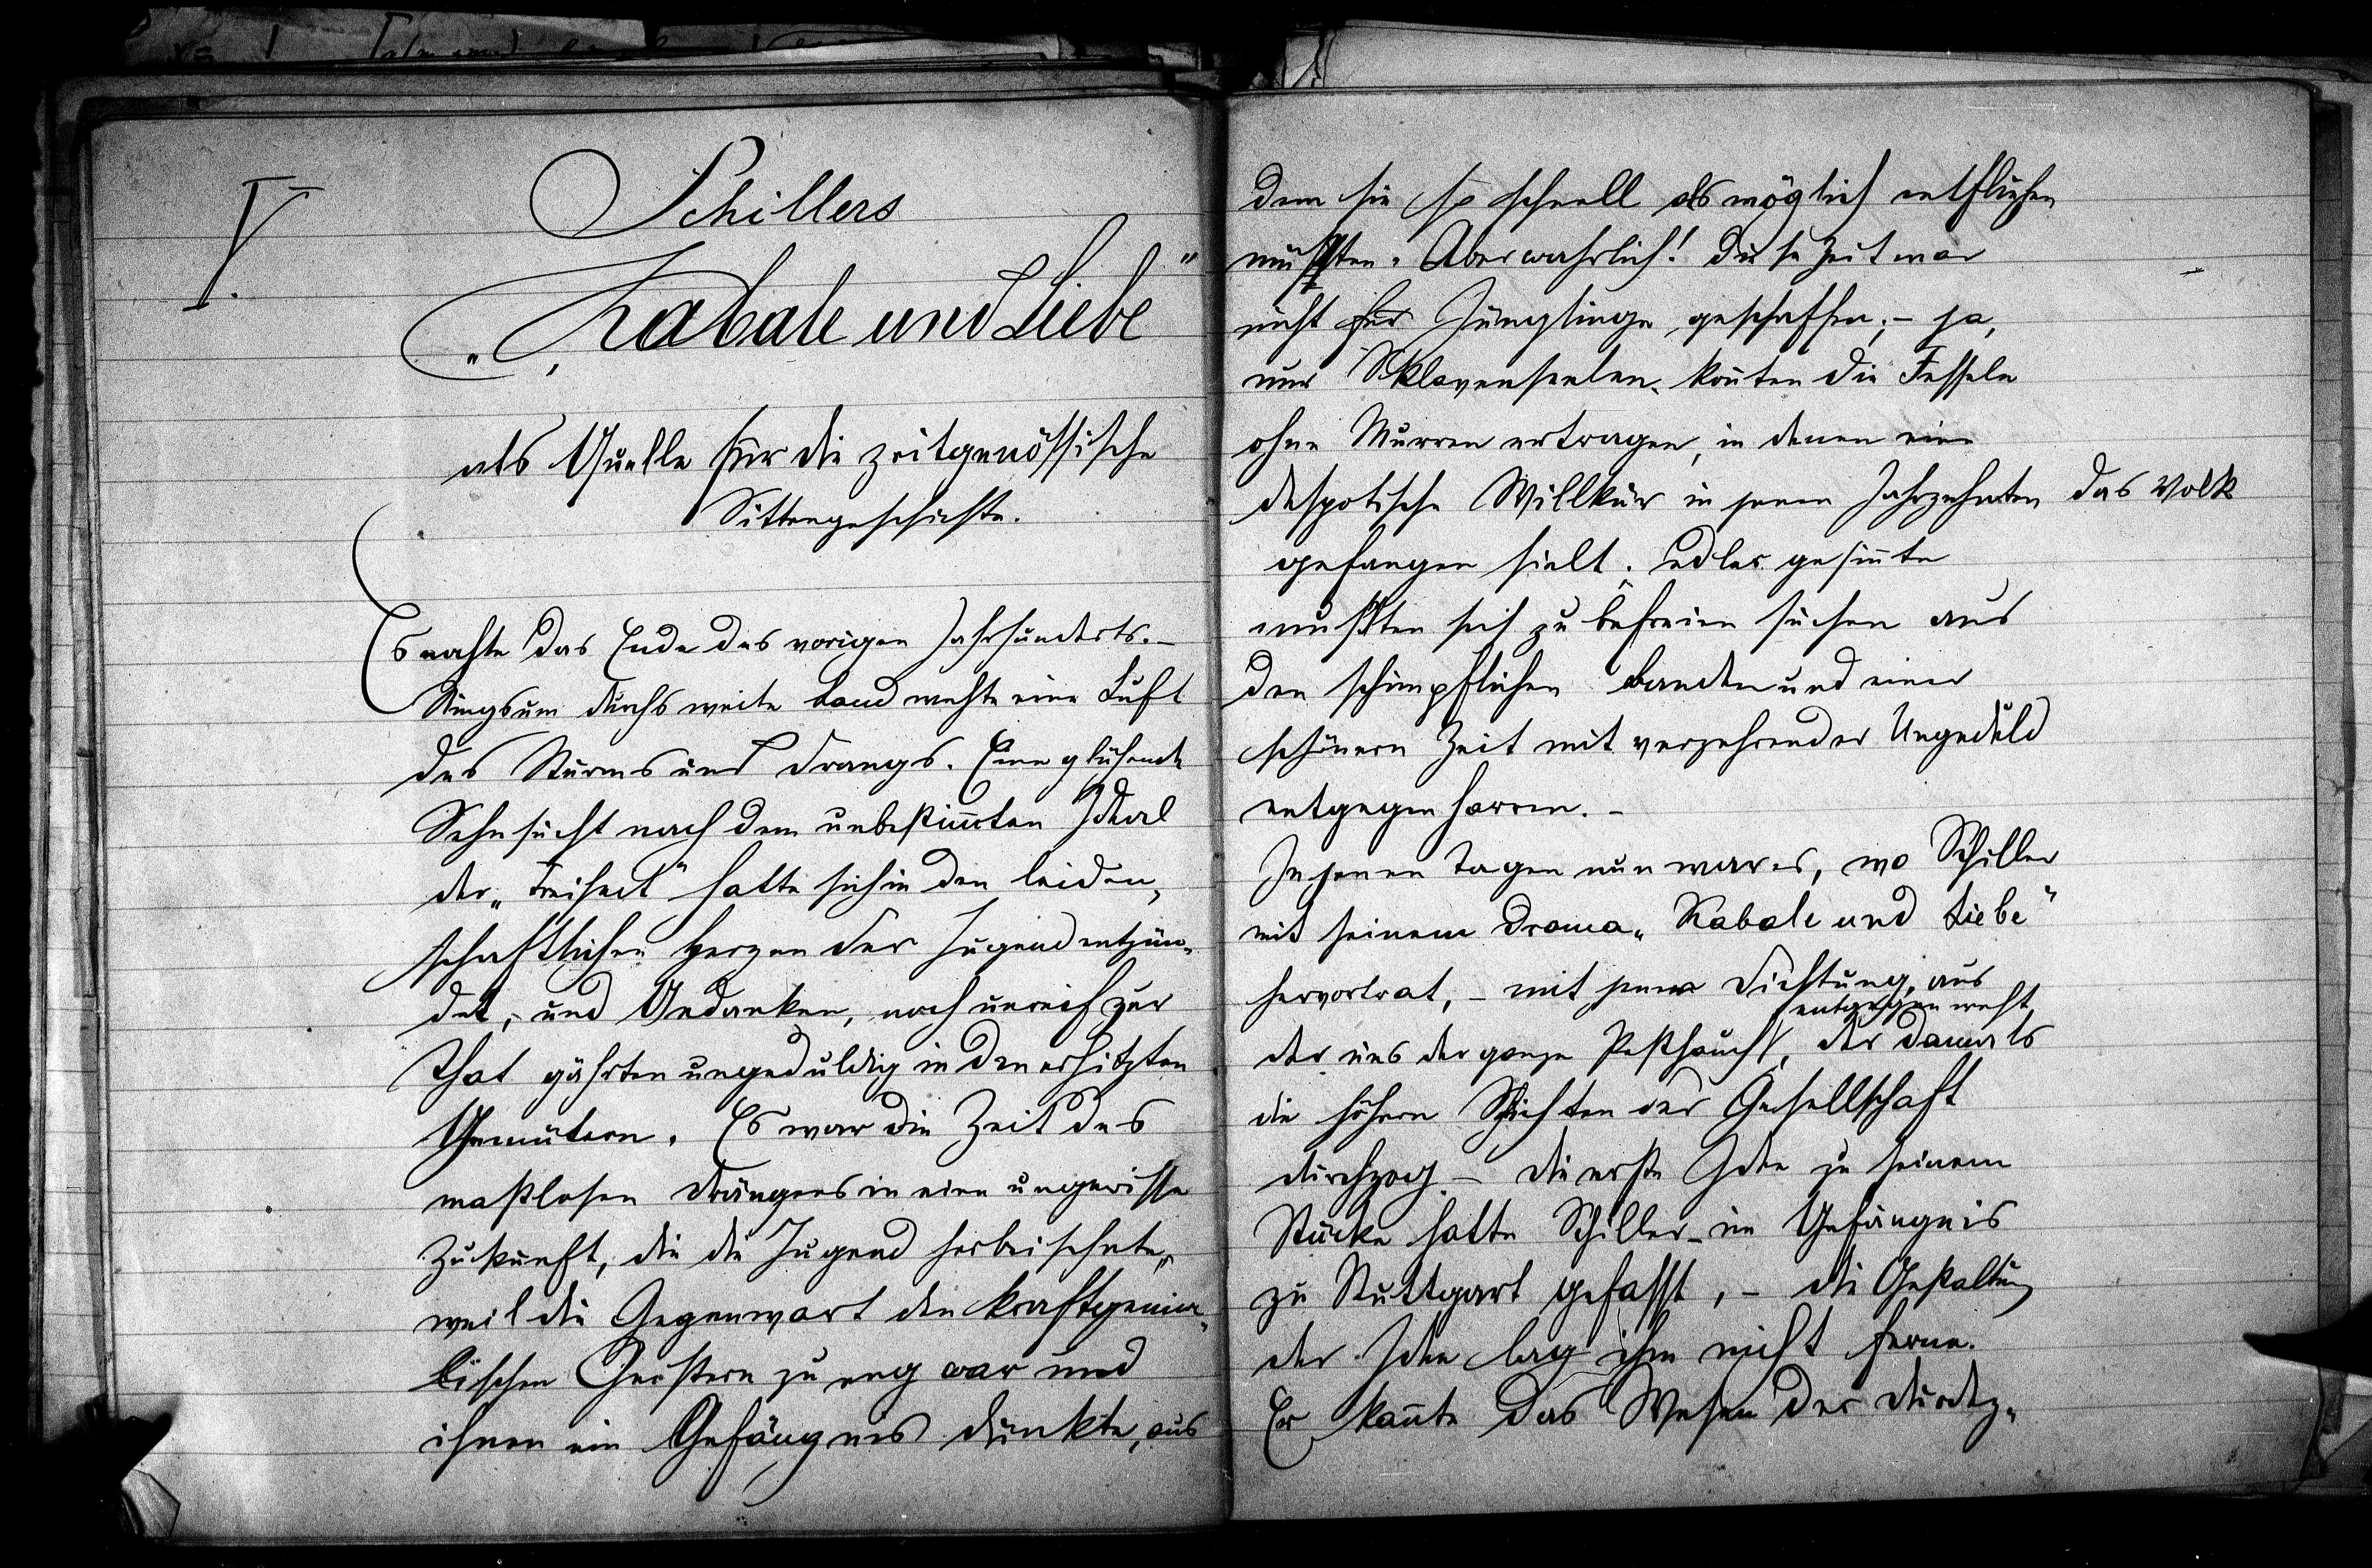 I.
Schillers
„Kabale und Liebe"
als Quelle für die zeitgenössische
Sittengeschichte.
Es nahte das Ende des vorigen Jahrhunderts. –
Ringsum durchs weite Land wehte eine Luft
des Sturms und Drangs. Eine glühende
Sehnsucht nach dem unbestim̅ten Ideal
der „Freiheit" hatte sich in den leiden-
schaftlichen Herzen der Jugend entzün-
det, – und Gedanken, noch unreif zur
That gährten ungeduldig in den erhitzten
Gemütern. Es war die Zeit des
maßlosen Drängens in eine ungewisse
Zukunft, die die Jugend herbeisehnte,
weil die Gegenwart den kraftgenia-
lischen Geistern zu eng war und
ihnen ein Gefängnis dünkte, aus
dem sie so schnell als möglich entfliehen
mußten. Aber wahrlich! diese Zeit war
nicht für Jünglinge geschaffen; – ja,
nur Sklavenseelen kon̅ten die Fesseln
ohne Murren ertragen, in denen eine
despotische Willkür in jenen Jahrzehnten das Volk
gefangen hielt. Edler gesin̅te
mußten sich zu befreien suchen aus
den schimpflichen Banden und einer
schönern Zeit mit verzehrender Ungeduld
entgegen harren. –
In jenen Tagen nun war es, wo Schiller
mit seinem Drama „Kabale und Liebe"
hervortrat, – mit jener Dichtung, aus
entgegen weht
der uns der ganze Pesthauch, der damals
die höhern Schichten der Gesellschaft
durchzog. – die erste Idee zu seinem
Stücke hatte Schiller im Gefängnis
zu Stuttgart gefasst, – die Gestaltung
der Idee lag ihm nicht ferne.
Er kan̅te das Wesen der